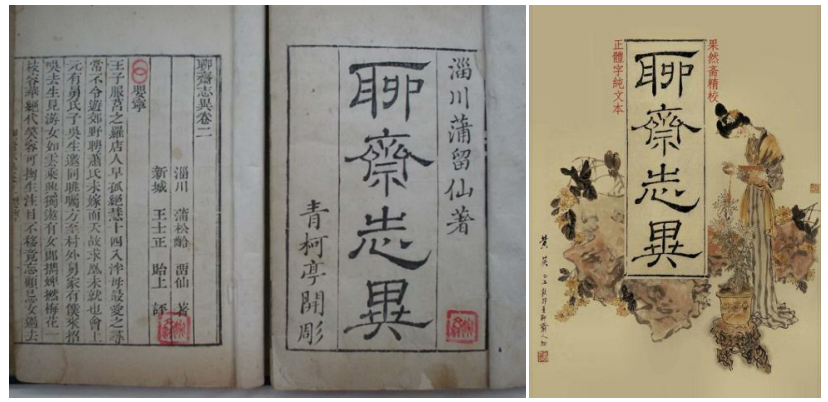 淄川蒲留仙著
聊齋志異
青柯亭開彫
聊齋志異卷二
淄川 蒲松齡 畱仙 著
新城 王士正 貽上 評
嬰寧
王子服莒之羅店人早孤絕慧十四入泮母最愛之尋
常不令遊郊野聘蕭氏未嫁而夭故求凰未就也會上
元有舅氏子吳生邀同眺矚方至村外舅家有僕來招
吳去生見游女如雲乘興獨遨有女郎攜婢撚梅花一
枝容華絕代笑容可掬生注目不移竟忘顧忌女過去
果然斋精校
聊齋志異
正體字純文本
黃英